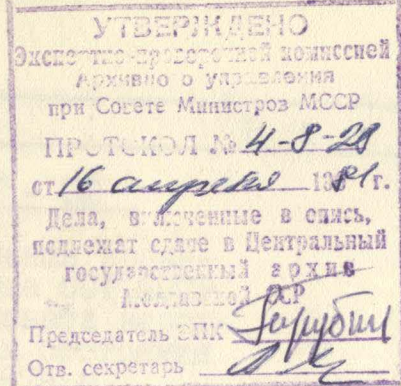 УТВЕРЖДЕНО
Экспертно-проверочной комиссией
Архивного управления
при Совете Министров МССР
ПРОТОКОЛ № 4-8-28
от 16 апреля 1981 г.
Дела, включенные в опись,
подлежат сдаче в Центральный
государственный архив
Молдавской ССР
Председатель ЭПК
Отв. секретарь